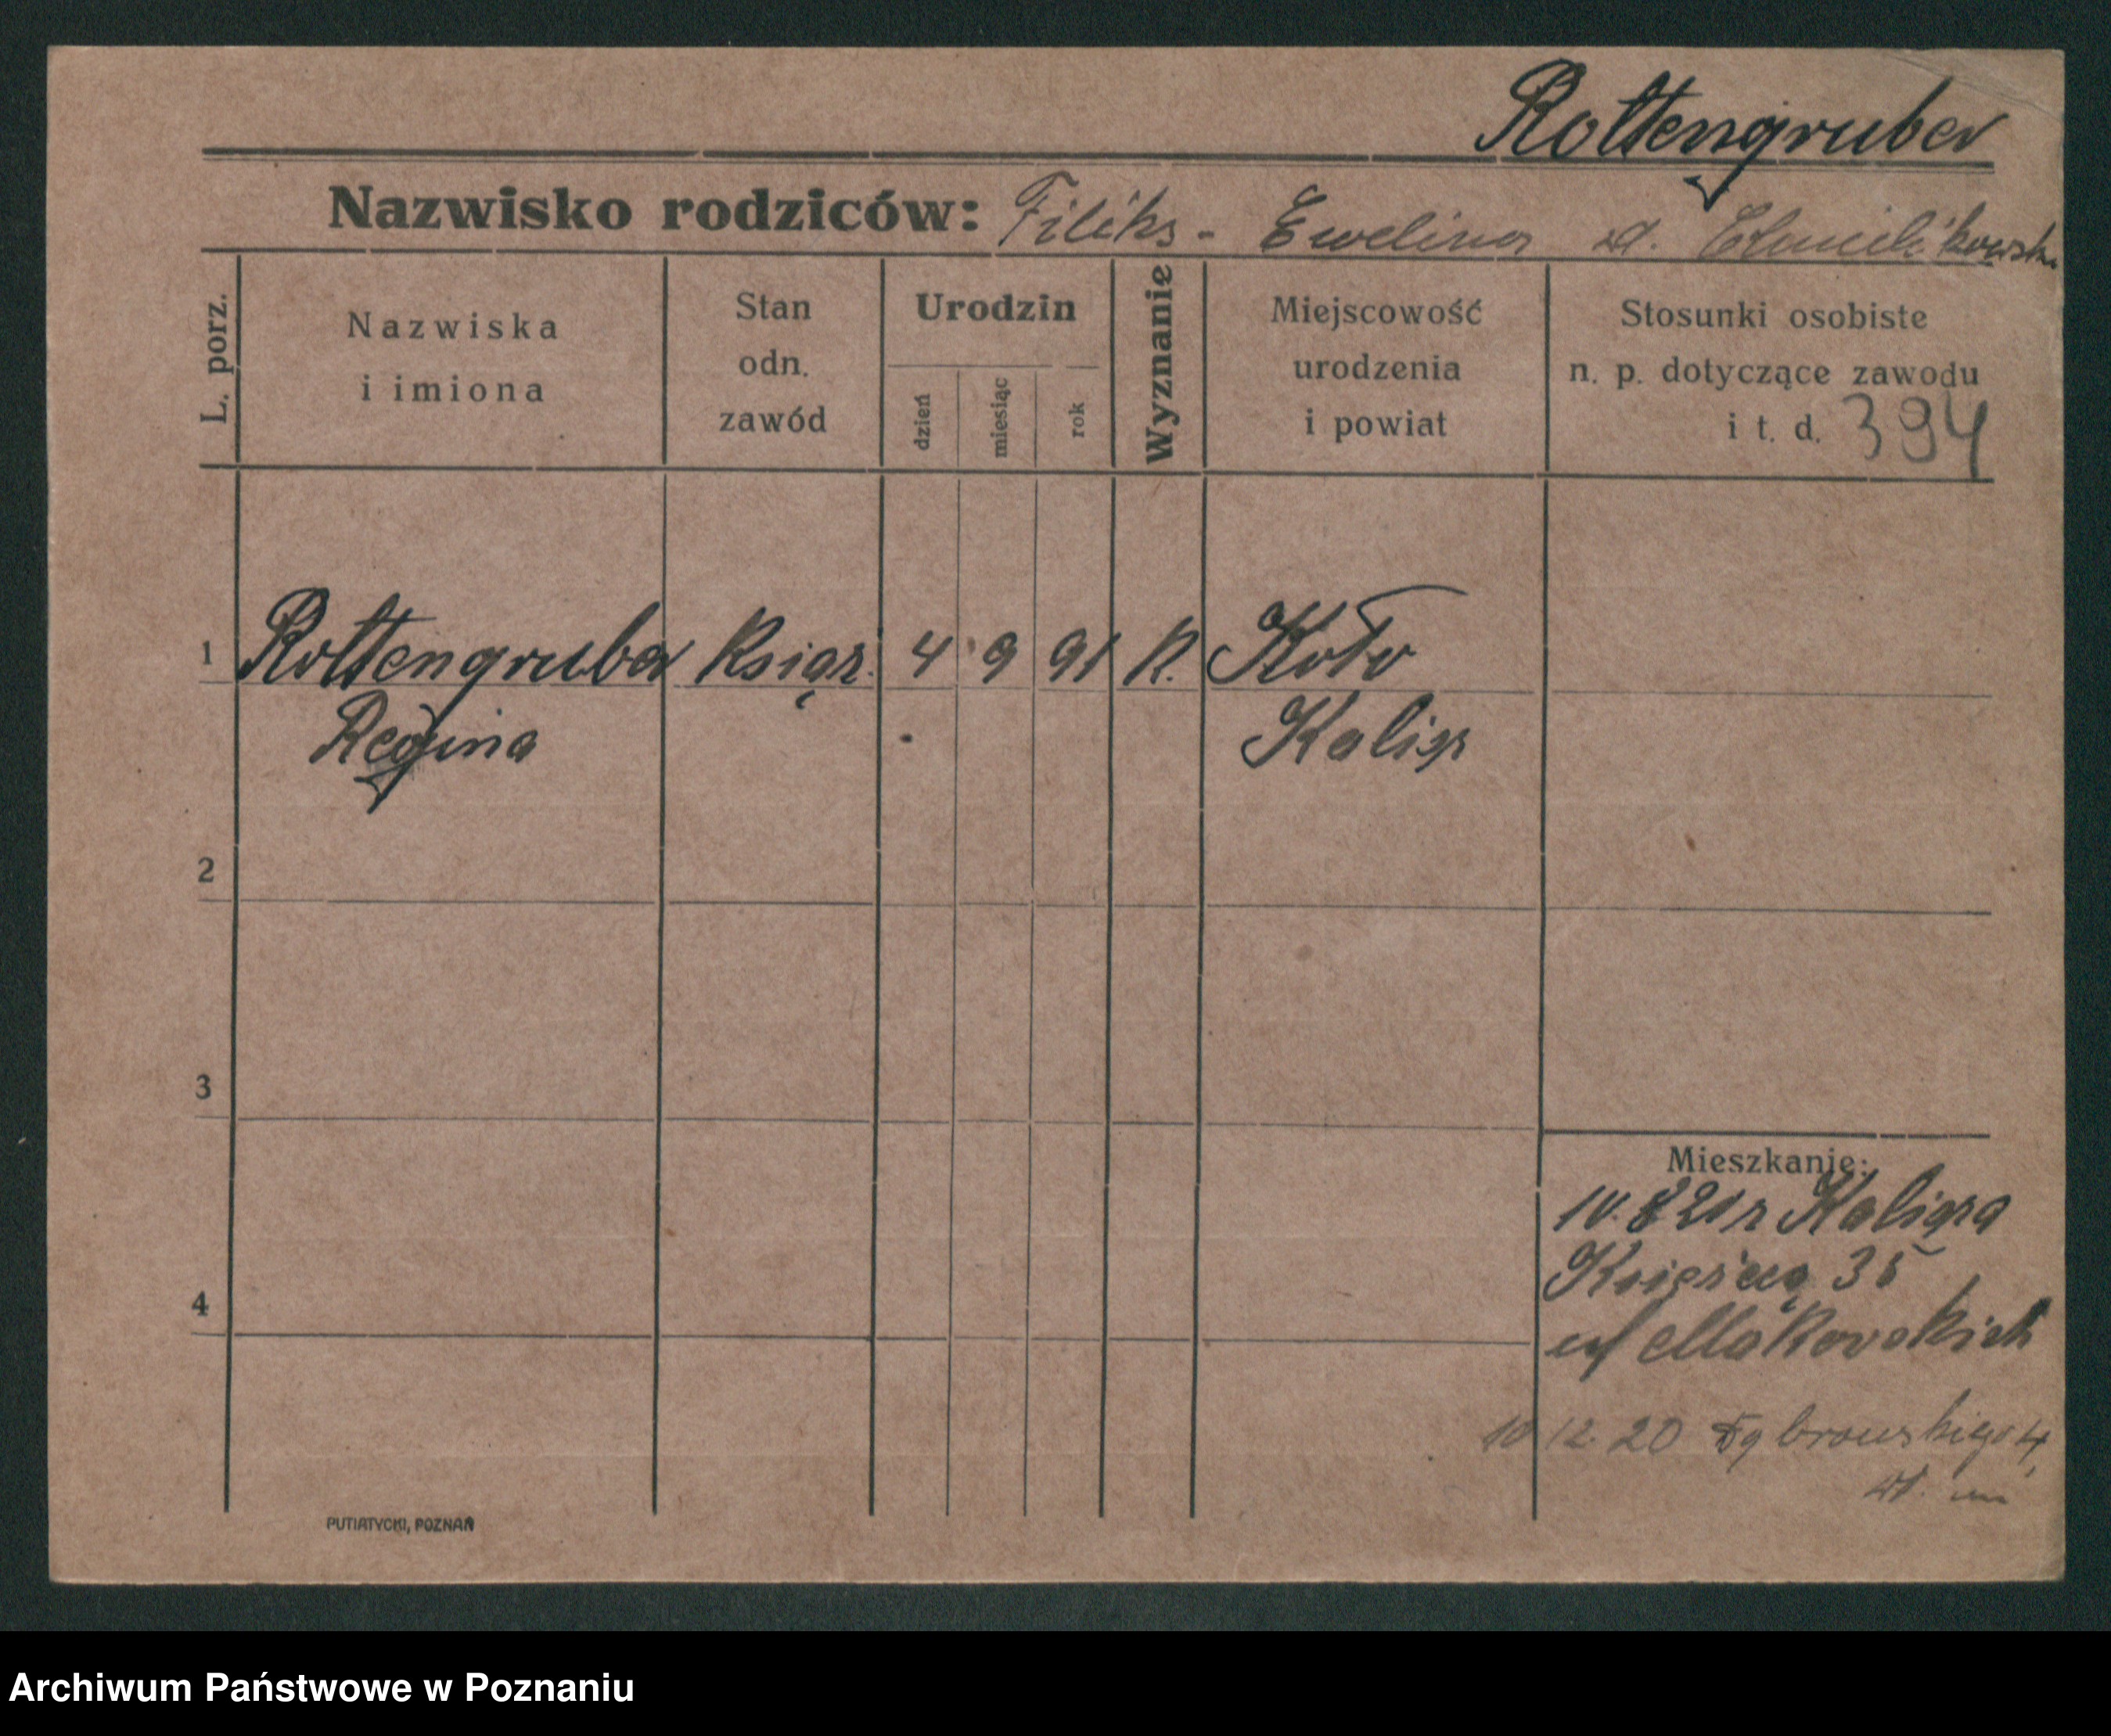 Rottengruber
Nazwisko rodziców: Filiks - Ewelina d.
L. porz.
Nazwiska
i imiona
Stan
odn.
zawód
Urodzin
dzień
miesiąc
rok
Wyznanie
Miejscowość
urodzenia
i powiat
Stosunki osobiste
n. p. dotyczące zawodu
i t. d. 394
1 Rottengruber Księg. 4 9 91 K. Koło
Regina Kalisz
2
3
4
Mieszkanie:
21 r Kalisza
35
Makowskich
10 12 20 Dąbrowskiego 4,
PUTIATYCKI, POZNAŃ
Archiwum Państwowe w Poznaniu